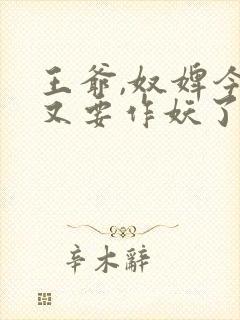 王爷,奴婢今
又要作妖了
辛木辭